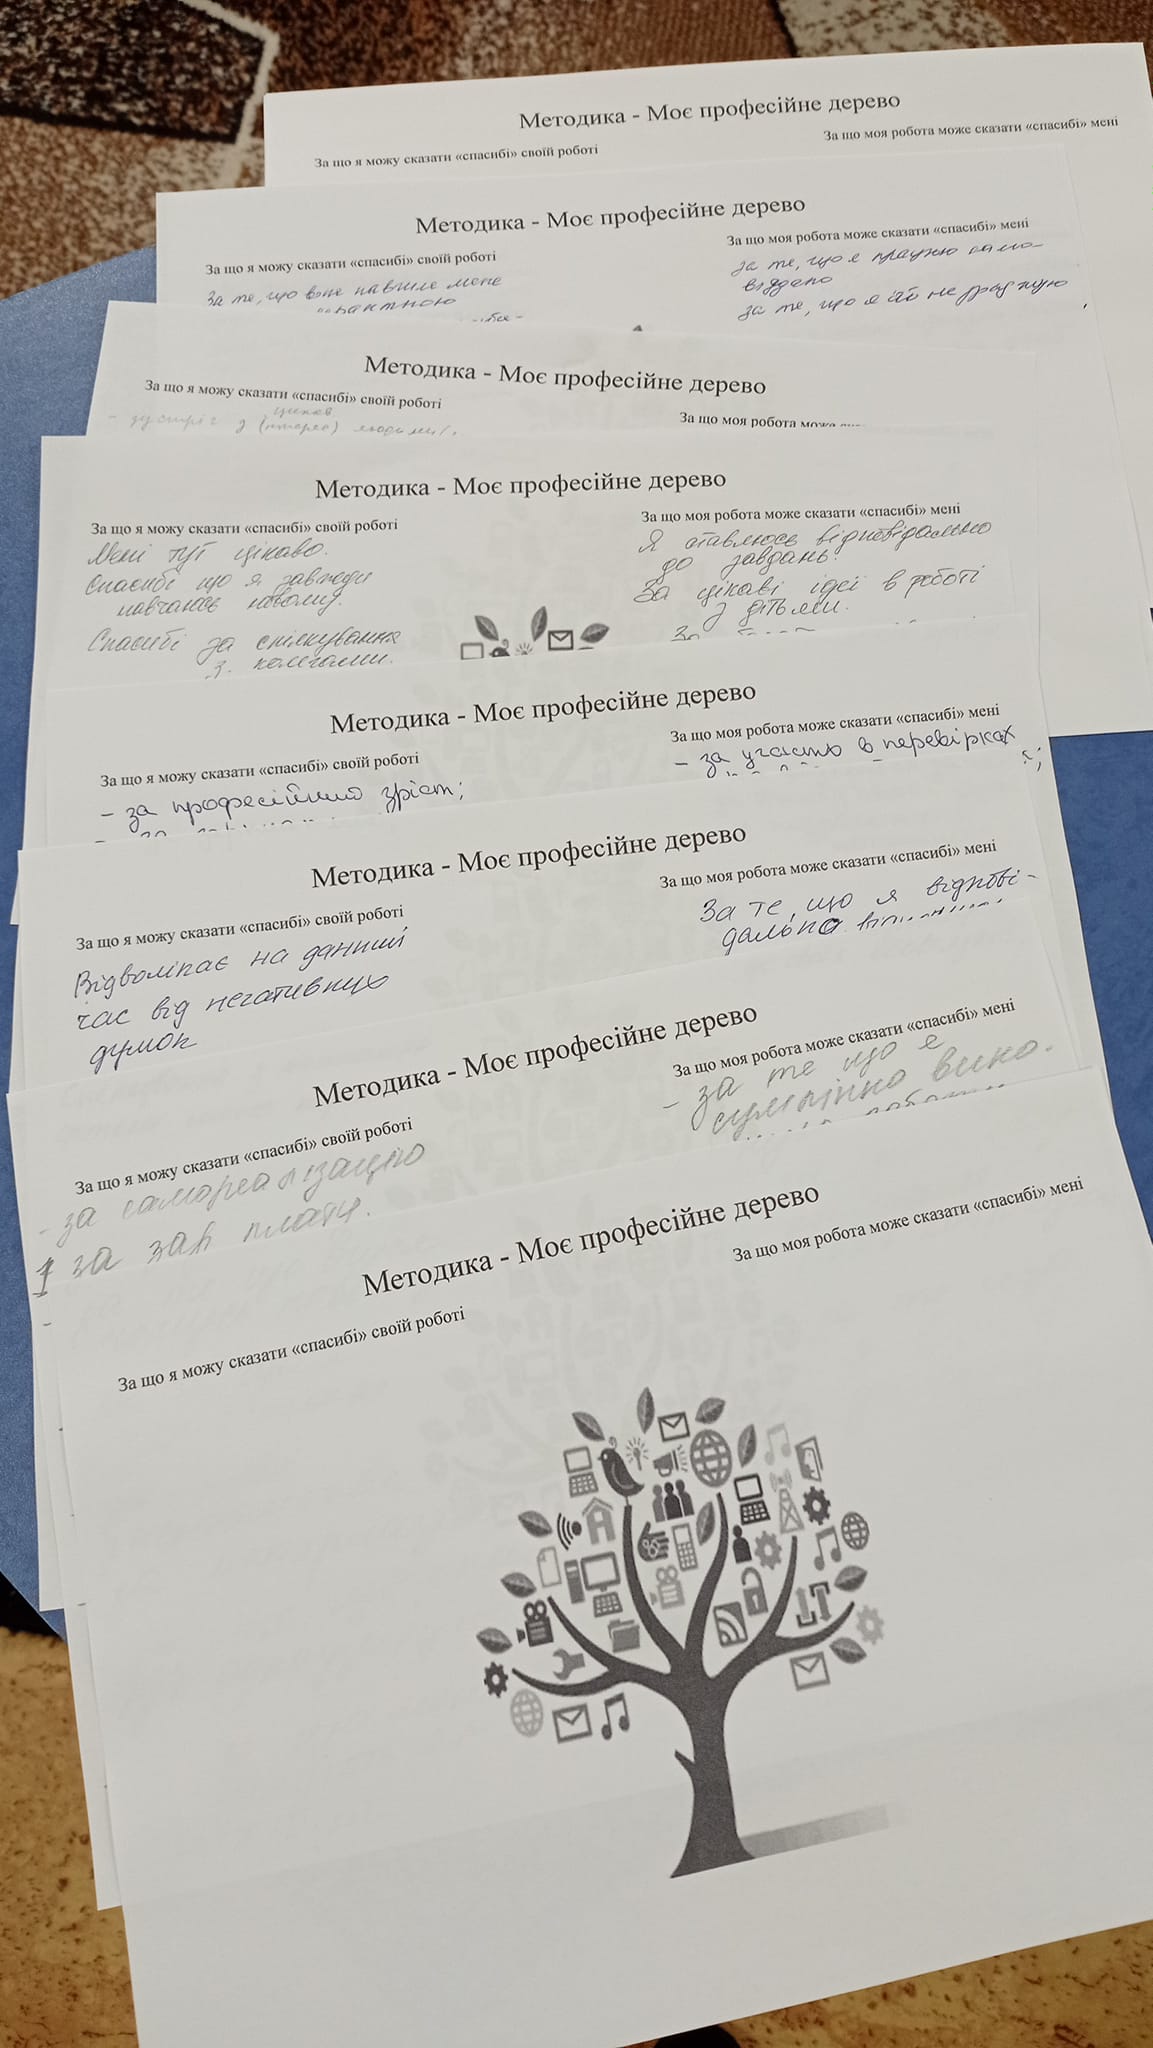 Методика - Моє професійне дерево
За що я можу сказати «спасибі» своїй роботі
За що моя робота може сказати «спасибі» мені
Методика - Моє професійне дерево
За що я можу сказати «спасибі» своїй роботі
За що моя робота може сказати «спасибі» мені
За те, що вона навчила мене
за те, що я працюю само-
віддано
за те, що я їй не
Методика - Моє професійне дерево
За що я можу сказати «спасибі» своїй роботі
За що моя робота може
- зустріч з
Методика - Моє професійне дерево
За що я можу сказати «спасибі» своїй роботі
За що моя робота може сказати «спасибі» мені
Мені тут цікаво.
Спасибі що я завжди
навчаюсь новому.
Спасибі за спілкування
з колегами.
Я ставлюсь відповідально
до завдань.
За цікаві ідеї в роботі
з дітьми.
За
Методика - Моє професійне дерево
За що я можу сказати «спасибі» своїй роботі
За що моя робота може сказати «спасибі» мені
- за професійний зріст;
- за участь в перевірках
Методика - Моє професійне дерево
За що я можу сказати «спасибі» своїй роботі
За що моя робота може сказати «спасибі» мені
Відволікає на даний
час від негативних
думок
За те, що я відпові-
дально
Методика - Моє професійне дерево
За що я можу сказати «спасибі» своїй роботі
За що моя робота може сказати «спасибі» мені
- за самореалізацію
за зар плату.
- за те що я
сумлінно вико.
Методика - Моє професійне дерево
За що я можу сказати «спасибі» своїй роботі
За що моя робота може сказати «спасибі» мені